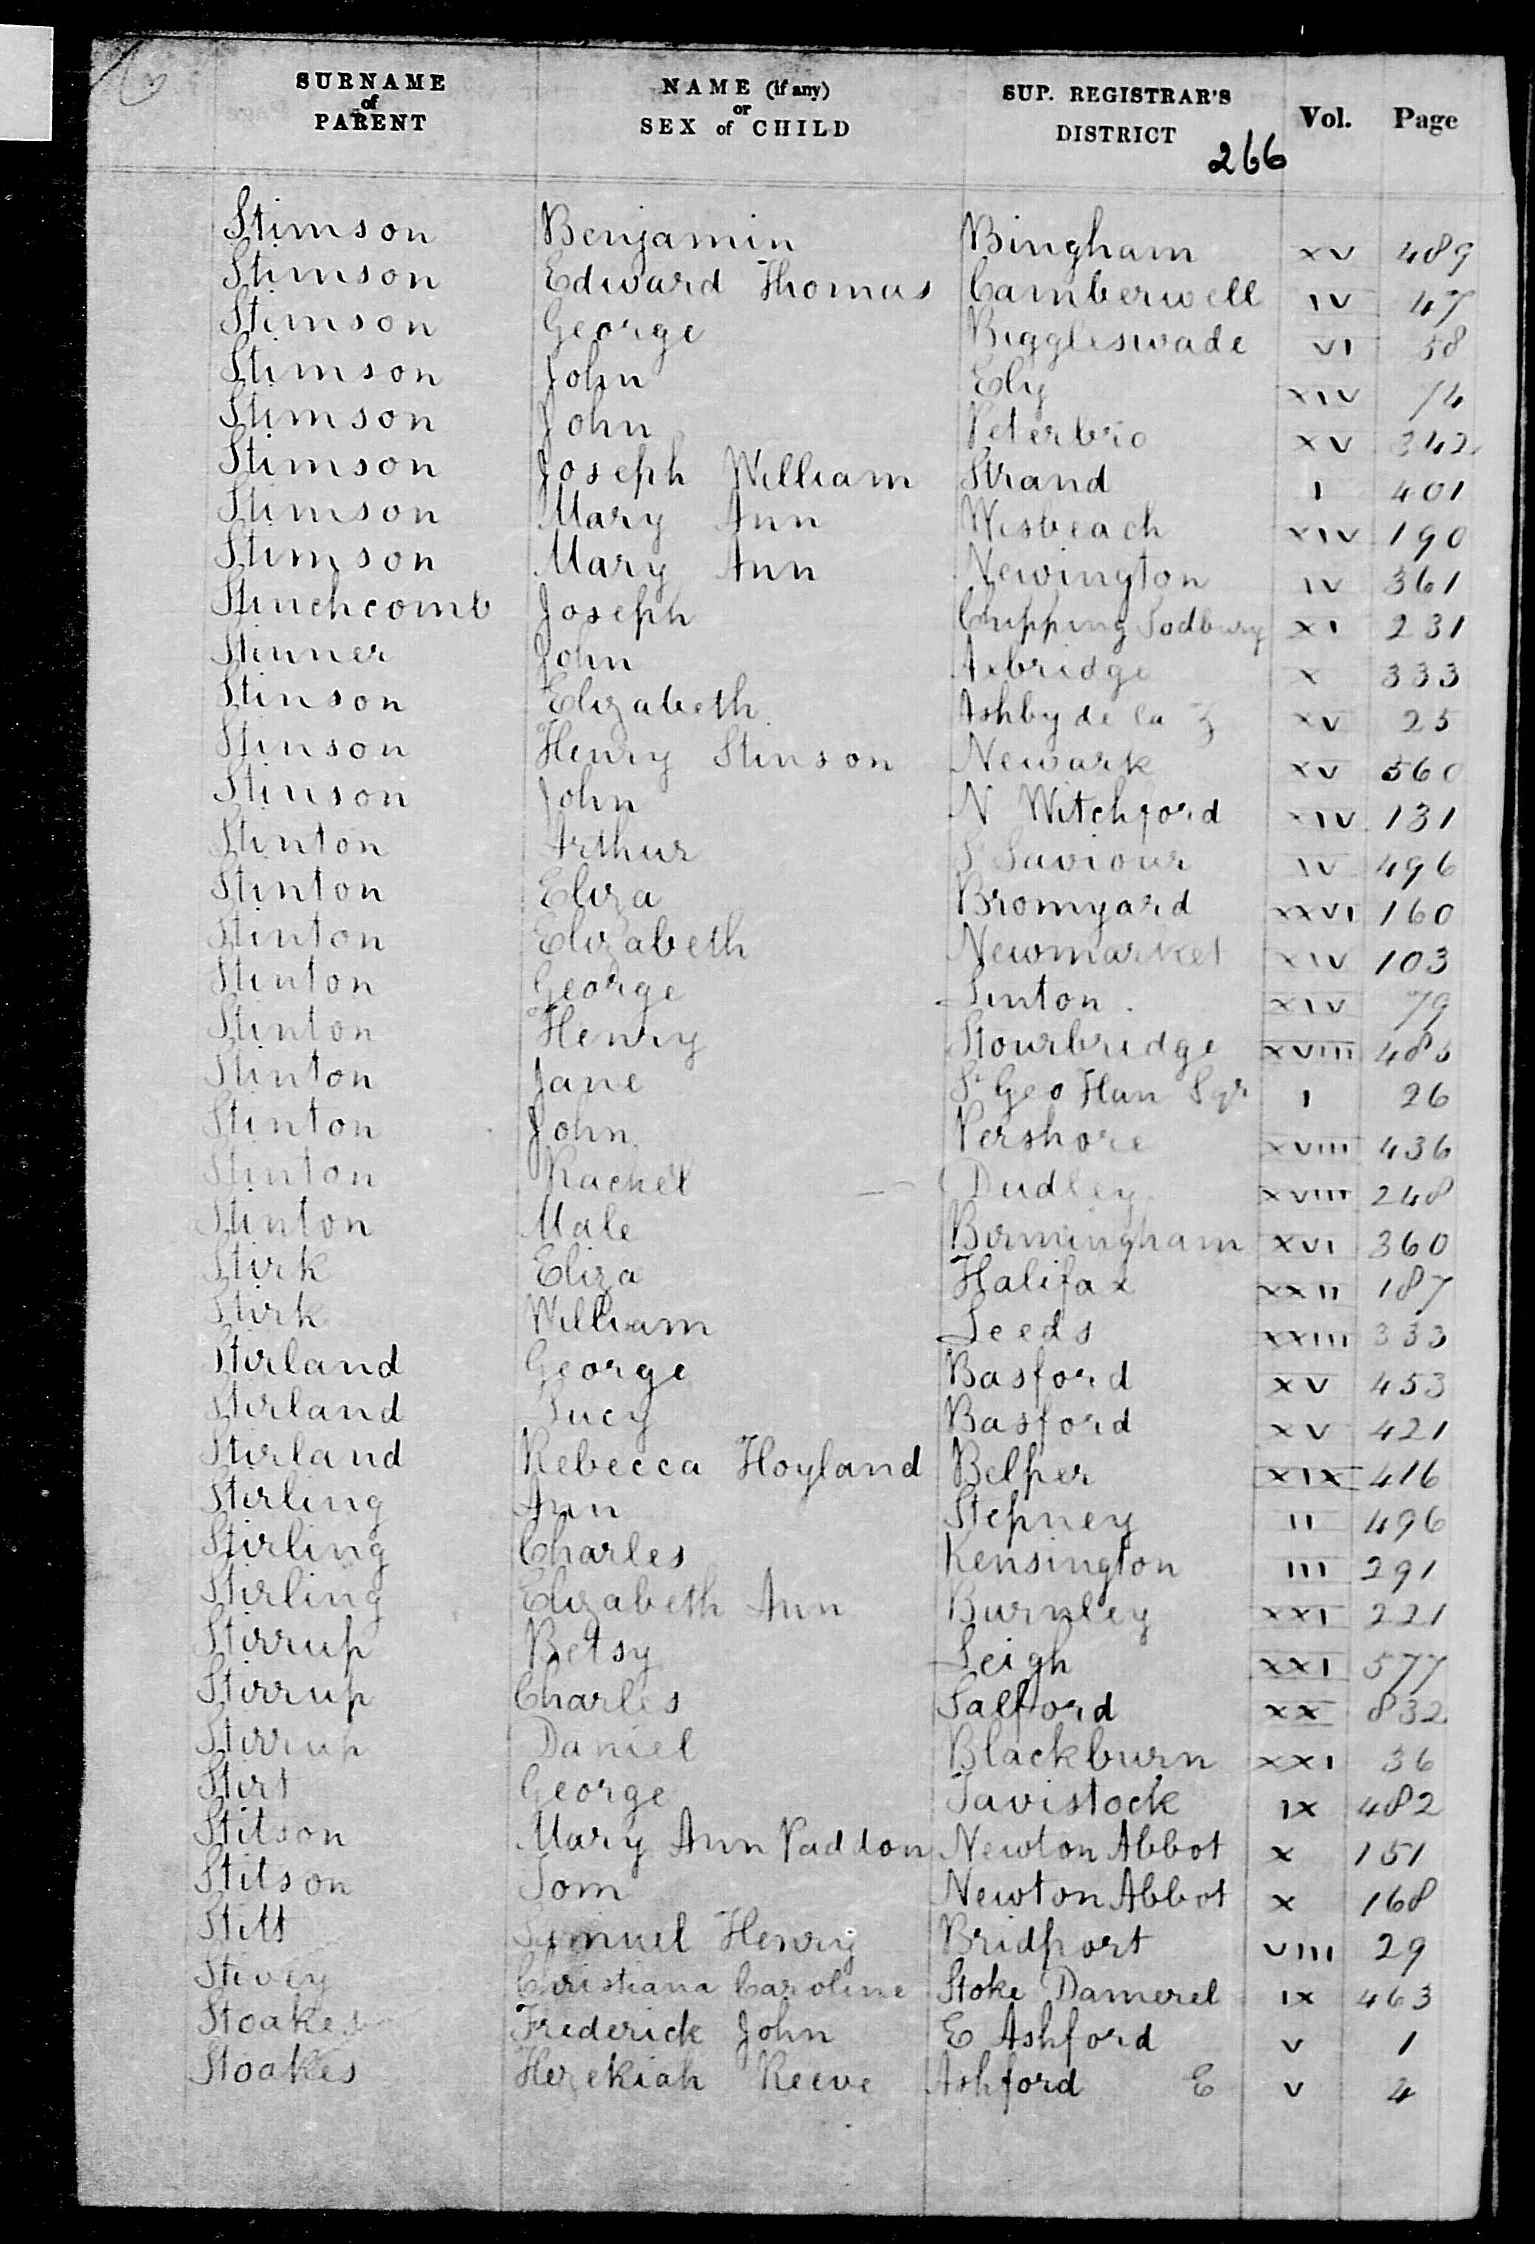 SURNAME of PARENT NAME (if any) or SEX of CHILD SUP. REGISTRAR'S DISTRICT Vol. Page
266
Stimson Benjamin Bingham XV 489
Stimson Edward Thomas Camberwell IV 47
Stimson George Biggleswade VI 58
Stimson John Ely XIV 74
Stimson John Peterbro XV 342
Stimson Joseph William Strand I 401
Stimson Mary Ann Wisbeach XIV 190
Stimson Mary Ann Newington IV 361
Stinchcomb Joseph Chipping Sodbury XI 231
Stinner John Axbridge X 333
Stinson Elizabeth Ashby de la Z XV 25
Stinson Henry Stinson Newark XV 560
Stinson John N Witchford XIV 131
Stinton Arthur St Saviour IV 496
Stinton Eliza Bromyard XXVI 160
Stinton Elizabeth Newmarket XIV 103
Stinton George Linton XIV 79
Stinton Henry Stourbridge XVIII 485
Stinton Jane St Geo Han Sqr I 26
Stinton John Pershore XVIII 436
Stinton Rachel Dudley XVIII 248
Stinton Male Birmingham XVI 360
Stirk Eliza Halifax XXII 187
Stirk William Leeds XXIII 333
Stirland George Basford XV 453
Stirland Lucy Basford XV 421
Stirland Rebecca Hoyland Belper XIX 416
Stirling Ann Stepney II 496
Stirling Charles Kensington III 291
Stirling Elizabeth Ann Burnley XXI 221
Stirrup Betsy Leigh XXI 577
Stirrup Charles Salford XX 832
Stirrup Daniel Blackburn XXI 36
Stirt George Tavistock IX 482
Stitson Mary Ann Vaddon Newton Abbot X 151
Stitson Tom Newton Abbot X 168
Stitt Samuel Henry Bridport VIII 29
Stivey Christiana Caroline Stoke Damerel IX 463
Stoakes Frederick John E Ashford V 1
Stoakes Hezekiah Reeve Ashford E V 4